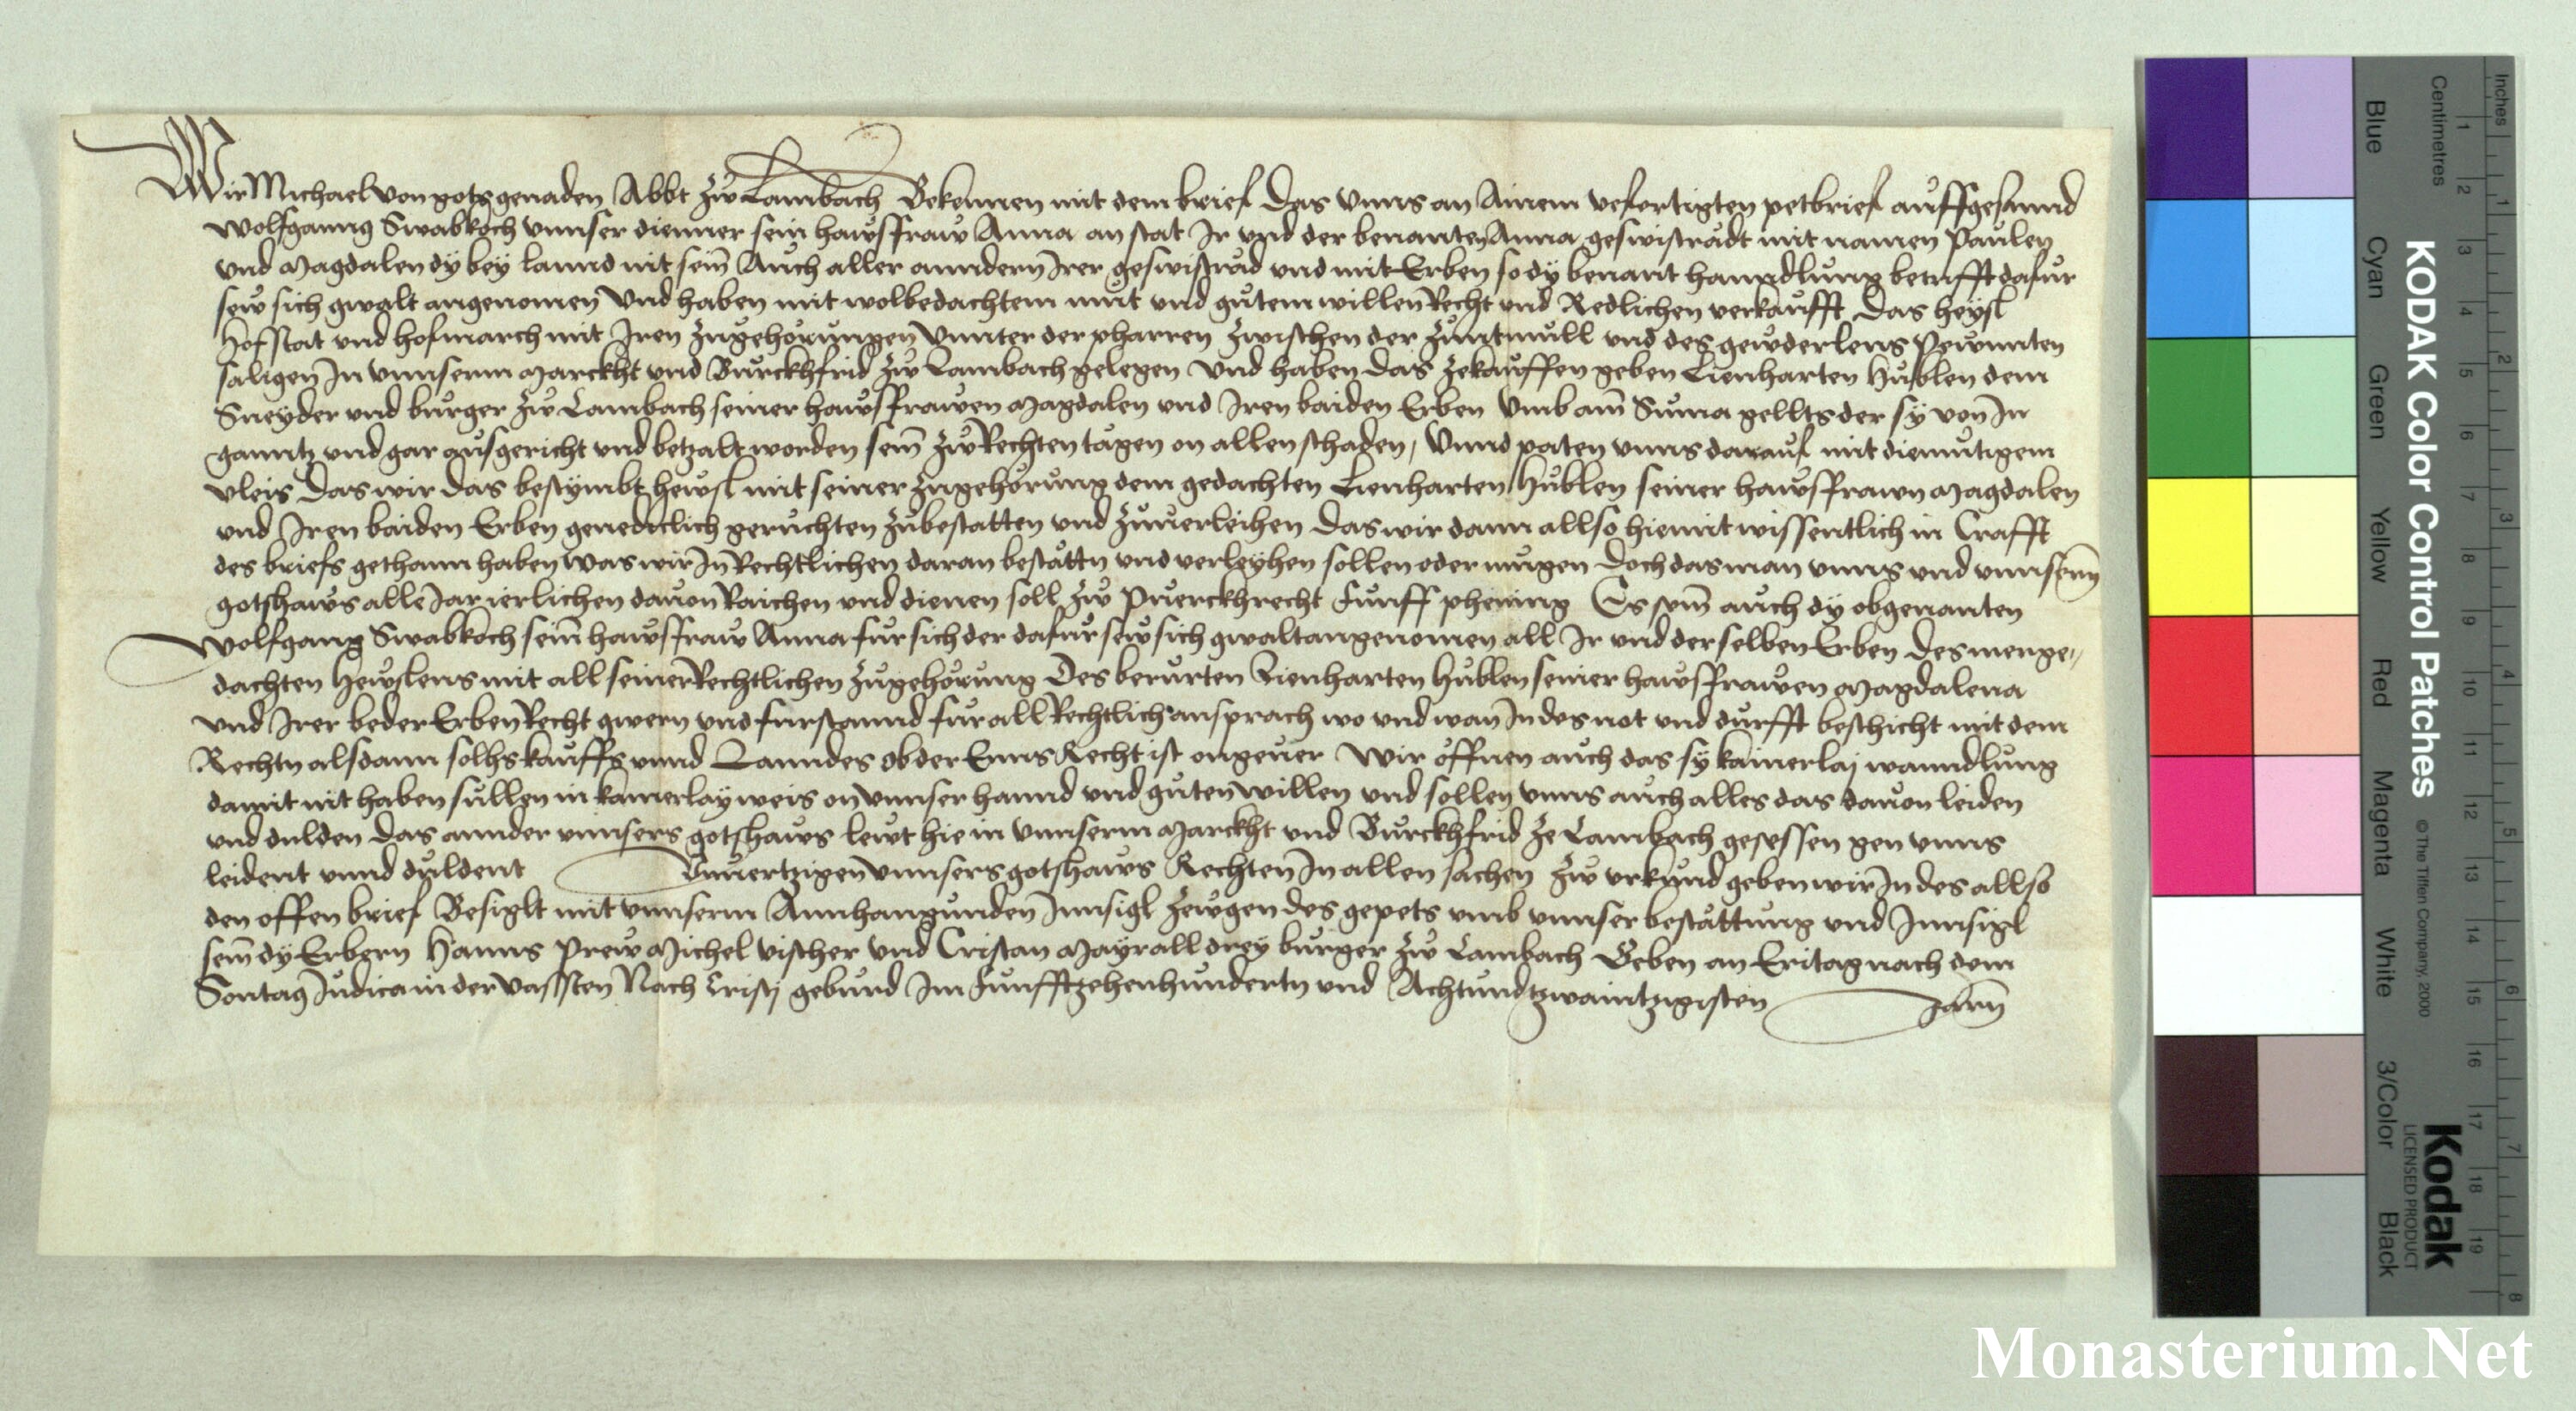 Wir Michael von gots genaden Abbt zẘ Lambach Bekennen mit dem brief Das vnns an Ainem vefertigten petbrief aůffgesannd
Wolfganng Swabkoch vnnser dienner sein haẘsfraẘ Anna an stat Ir vnd der benanten Anna geswistrådt mit namen Paůlen
vnd Magdalen dÿ beÿ lannd nit sein̄ Aůch aller anndern Irer geswistråd vnd mit Erben so dÿ benant hanndlůng betrifft dafůr
seẘ sich gwalt angenomen Vnd haben mit wolbedachtem můt vnd gůtem willen Recht vnd Redlichen verkaůfft Das heÿsl
Hofstat vnd hofmarch mit Iren zůgehörůngen Vnnter der pharren zwischen der Zůntmůll vnd des
saligen In vnnserm Marckht vnd Bůrckhfrid Zẘ Lambach gelegen Vnd haben das zekaůffen geben Lienharten Hůblen dem
Sneÿder vnd bůrger zẘ Lambach seiner haẘsfraẘen Magdalen vnd Iren baiden Erben Vmb ain̄ Sůma gellts der sÿ von In
ganntz vnd gar aůsgericht vnd betzalt worden sein̄ zẘ Rechten tågen on allen schaden, Vnnd paten vnns daraůf mit diemůtigem
vleis Das wir das bestÿmbt heẘsl mit seiner zůgehörůng dem gedachten Lienharten Hůblen seiner haẘsfrawn Magdalen
vnd Iren baiden Erben genedicklich gerůchten zůbestatten vnd zůuerleihen Das wir dann allso hiemit wissentlich in Crafft
des briefs gethann haben Was wir In Rechtlichen daran beståttn vnd verleÿhen sollen oder můgen Doch das man vnns vnd vnnserm
gotshaẘs alle Iar ierlichen dauon Raichen vnd dienen soll zẘ Půerckhrecht Fůnff phening Es sein̄ aůch dÿ obgenanten
Wolfgang Swabkoch sein̄ haẘsfraẘ Anna fůr sich der dafůr seẘ sich gwalt angenomen all Ir vnd der selben Erben Des merge,,
dachten Heẘslens mit all seiner Rechtlichen zůgehörůng Des berůrten Lienharten Hůblen seiner haẘsfraẘen Magdalena
vnd Irer beder Erben Recht gwern vnd fůrstannd fůr all Rechtlich ansprach wo vnd wan In des not vnd důrfft beschicht mit dem
Rechtn als dann solhs kaůffs vnnd Lanndes ob der Enns Recht ist ongeuer Wir öffnen aůch das sÿ kainerlaj wanndlůng
damit nit haben sůllen in kainerlaÿ weis on vnnser hannd vnd gůten willen vnd sollen vnns aůch alles das dauon leiden
vnd dulden das annder vnnsers gotshaẘs leẘt hie in vnnserm Marckht vnd Bůrckhfrid ze Lambach gesessen gen vnns
leident vnnd důldent Vnůertzigen vnnsers gotshaẘs Rechten In allen sachen Zẘ vrkůnd geben wir In des allso
den offen brief Besiglt mit vnnserm Annhangůnden Innsigl Zeẘgen des gepets vmb vnnser beståttůng vnd Innsigl
sein̄ dÿ Erbern Hanns Preẘ Michel Vischer vnd Cristan Maÿr all dreÿ bůrger zẘ Lambach Geben an Eritag nach dem
Sontag Iudica in der Vassten Nach Cristi gebůrd Im Fůnfftzehenhůndertn vnd Achtůndtzwaintzigisten Jarn̄
KODAK Color Control Patches
© The Tiffen Company, 2000
Kodak
LICENSED PRODUCT
Inches 1 2 3 4 5 6 7 8
Centimetres 1 2 3 4 5 6 7 8 9 10 11 12 13 14 15 16 17 18 19
Blue Cyan Green Yellow Red Magenta White 3/Color Black
Monasterium.Net